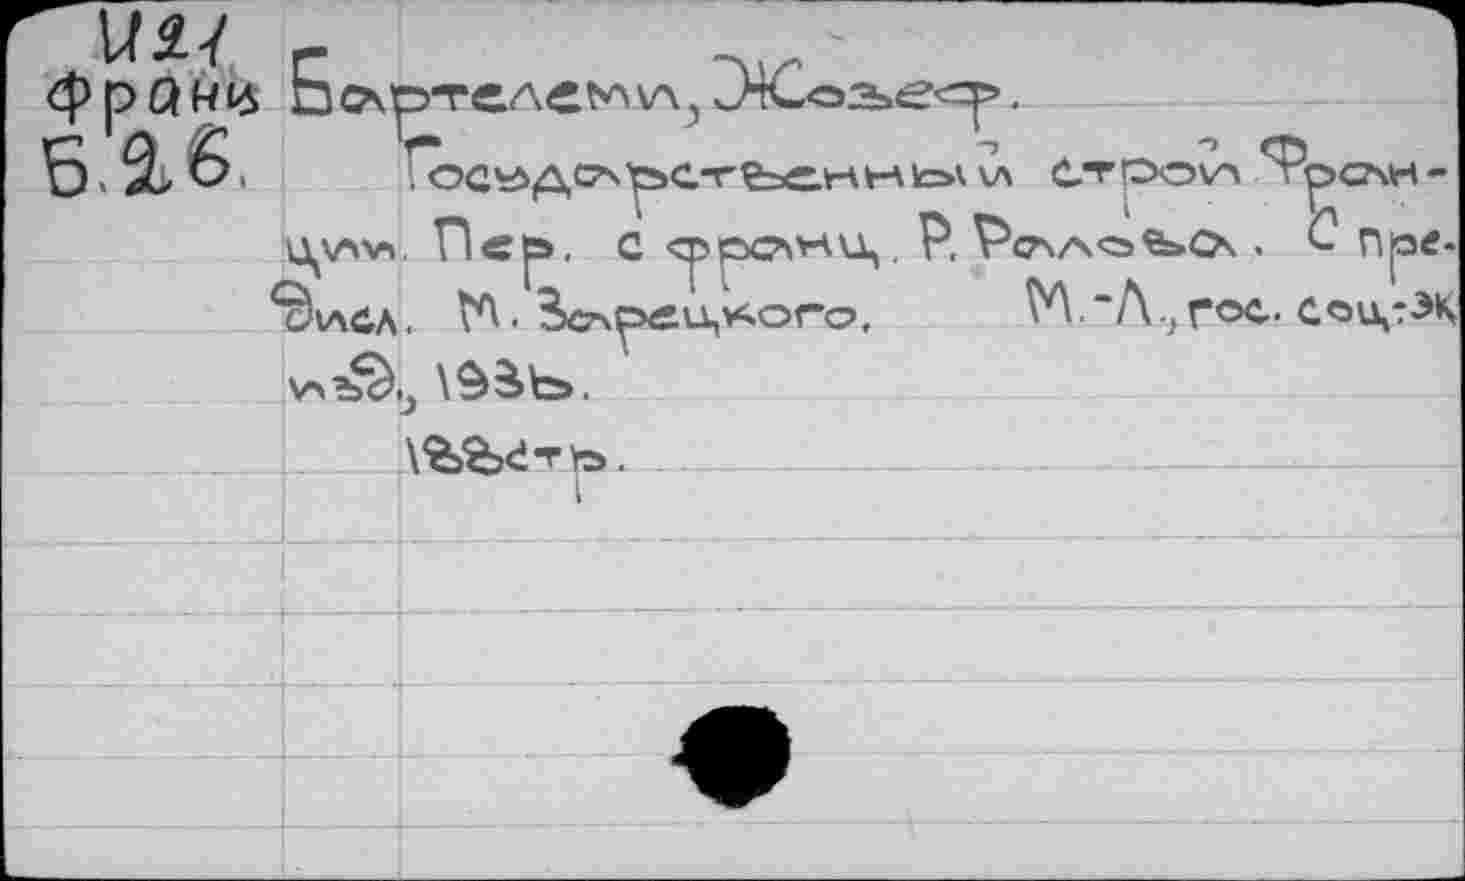 И21
Франц Бартелеми, Жозеф.
Б.26. Государственный строй Фран-
ции. Пер. с франц. Р. Раллова. С пре-
дисл. М. Зарецкого. М.-Л., гос. соц.-эк
изд., 1936.